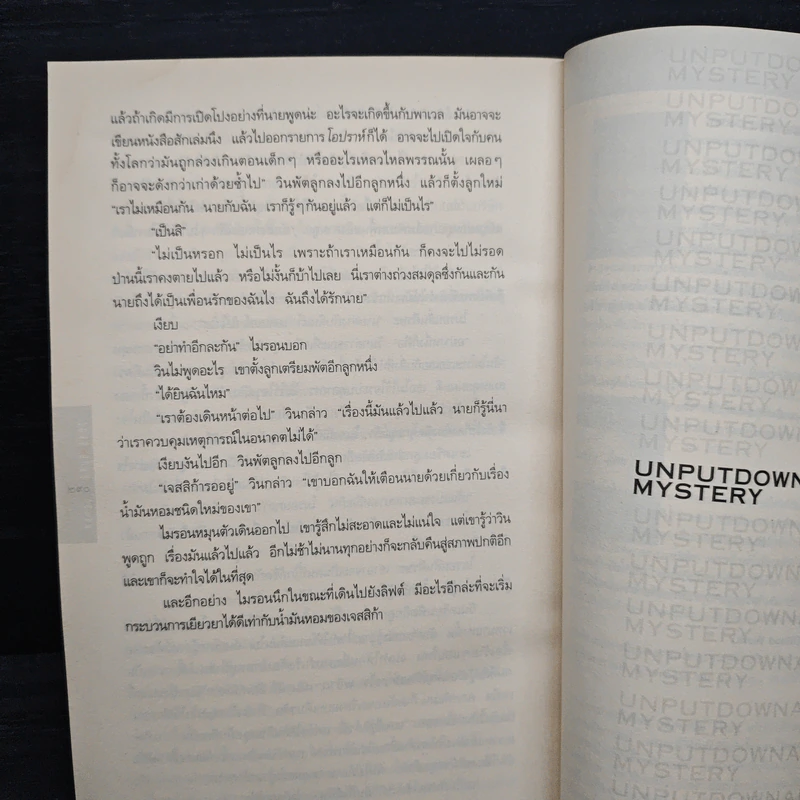 แล้วถ้าเกิดมีการเปิดโปงอย่างที่นายพูดน่ะ อะไรจะเกิดขึ้นกับพาเวล มันอาจจะ
เขียนหนังสือสักเล่มนึง แล้วไปออกรายการโอปราห์ก็ได้ อาจจะไปเปิดใจกับคน
ทั้งโลกว่ามันถูกล่วงเกินตอนเด็กๆ หรืออะไรเหลวไหลพรรณนั้น เผลอๆ
ก็อาจจะดังกว่าเก่าด้วยซ้ำไป" วินพัตลูกลงไปอีกลูกหนึ่ง แล้วก็ตั้งลูกใหม่
"เราไม่เหมือนกัน นายกับฉัน เราก็รู้ๆกันอยู่แล้ว แต่ก็ไม่เป็นไร"
"เป็นสิ"
"ไม่เป็นหรอก ไม่เป็นไร เพราะถ้าเราเหมือนกัน ก็คงจะไปไม่รอด
ป่านนี้เราคงตายไปแล้ว หรือไม่งั้นก็บ้าไปเลย นี่เราต่างถ่วงสมดุลซึ่งกันและกัน
นายถึงได้เป็นเพื่อนรักของฉันไง ฉันถึงได้รักนาย"
เงียบ
"อย่าทำอีกละกัน" ไมรอนบอก
วินไม่พูดอะไร เขาตั้งลูกเตรียมพัตอีกลูกหนึ่ง
"ได้ยินฉันไหม"
"เราต้องเดินหน้าต่อไป" วินกล่าว "เรื่องนี้มันแล้วไปแล้ว นายก็รู้นี่นา
ว่าเราควบคุมเหตุการณ์ในอนาคตไม่ได้"
เงียบงันไปอีก วินพัตลูกลงไปอีกลูก
"เจสสิก้ารออยู่" วินกล่าว "เขาบอกฉันให้เตือนนายด้วยเกี่ยวกับเรื่อง
น้ำมันหอมชนิดใหม่ของเขา"
ไมรอนหมุนตัวเดินออกไป เขารู้สึกไม่สะอาดและไม่แน่ใจ แต่เขารู้ว่าวิน
พูดถูก เรื่องมันแล้วไปแล้ว อีกไม่ช้าไม่นานทุกอย่างก็จะกลับคืนสู่สภาพปกติอีก
และเขาก็จะทำใจได้ในที่สุด
และอีกอย่าง ไมรอนนึกในขณะที่เดินไปยังลิฟต์ มีอะไรอีกล่ะที่จะเริ่ม
กระบวนการเยียวยาได้ดีเท่ากับน้ำมันหอมของเจสสิก้า
UNPUTDO
MYSTERY
UNPUTDOWN
MYSTERY
UNPUTDOWN
MYSTERY
UNPUTDOWNA
MYSTERY
UNPUTDOWNA
MYSTERY